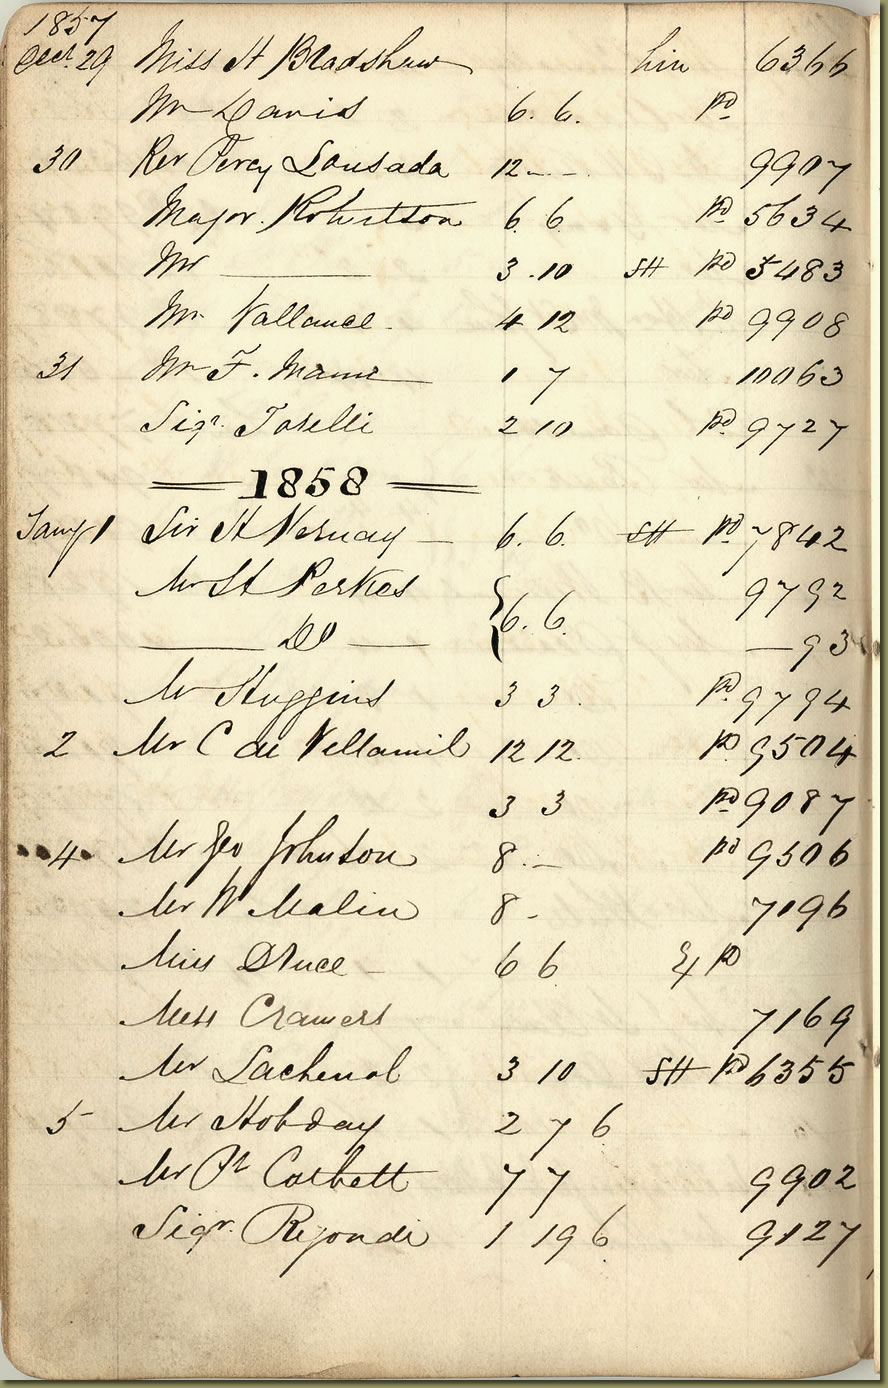 1857
Decr. 29 Miss H Bradshaw hire 6366
Mr Davis 6. 6. pd
30 Rev Percy Lousada 12 - - 9907
Major Robertson 6. 6. pd 5634
Mr ——— 3. 10 SH pd 5483
Mr Vallance 4 12 pd 9908
31 Mr F. Mann 1 7 10063
Sigr. Torelli 2 10 pd 9727
1858
Jany 1 Sir H Verney — 6. 6. SH pd 7842
Mr St Perkes 9792
—— Do —— { 6. 6. — 93
Mr Huggins 3 3. pd 9794
2 Mr C de Villamil 12 12. pd 9504
3 3 pd 9087
4 Mr Geo Johnson 8. — pd 9506
Mr W Malin 8 - 7196
Miss Druce — 6 6 pd
Mess Cramers 7169
Mr Lachenal 3 10 SH pd 6355
5 Mr Hobday 2 7 6
Mr Corbett 7 7 9902
Sigr. 1 19 6 9127